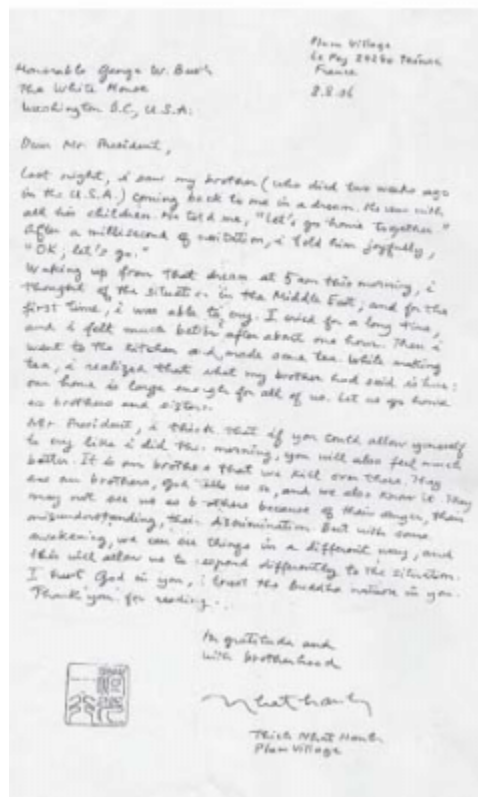 Plum Village
Le Pey 24240 Thénac
France
8.8.06
Honorable George W. Bush
The White House
Washington D.C., U.S.A.
Dear Mr. President,
Last night, i saw my brother (who died two weeks ago
in the U.S.A.) coming back to me in a dream. He was with
all his children. He told me, "Let's go home together."
After a millisecond of hesitation, i told him joyfully,
"OK, let's go."
Waking up from that dream at 5 am this morning, i
thought of the situation in the Middle East; and for the
first time, i was able to cry. I cried for a long time,
and i felt much better after about one hour. Then i
went to the kitchen and made some tea. While making
tea, i realized that what my brother had said is true:
our home is large enough for all of us. Let us go home
as brothers and sisters.
Mr. President, i think that if you could allow yourself
to cry like i did this morning, you will also feel much
better. It is our brothers that we kill over there. They
are our brothers, God tells us so, and we also know it. They
may not see us as brothers because of their anger, their
misunderstanding, their discrimination. But with some
awakening, we can see things in a different way, and
this will allow us to respond differently to the situation.
I trust God in you, i trust the Buddha nature in you.
Thank you for reading.
In gratitude and
with brotherhood
Nhat Hanh
Thich Nhat Hanh
Plum Village